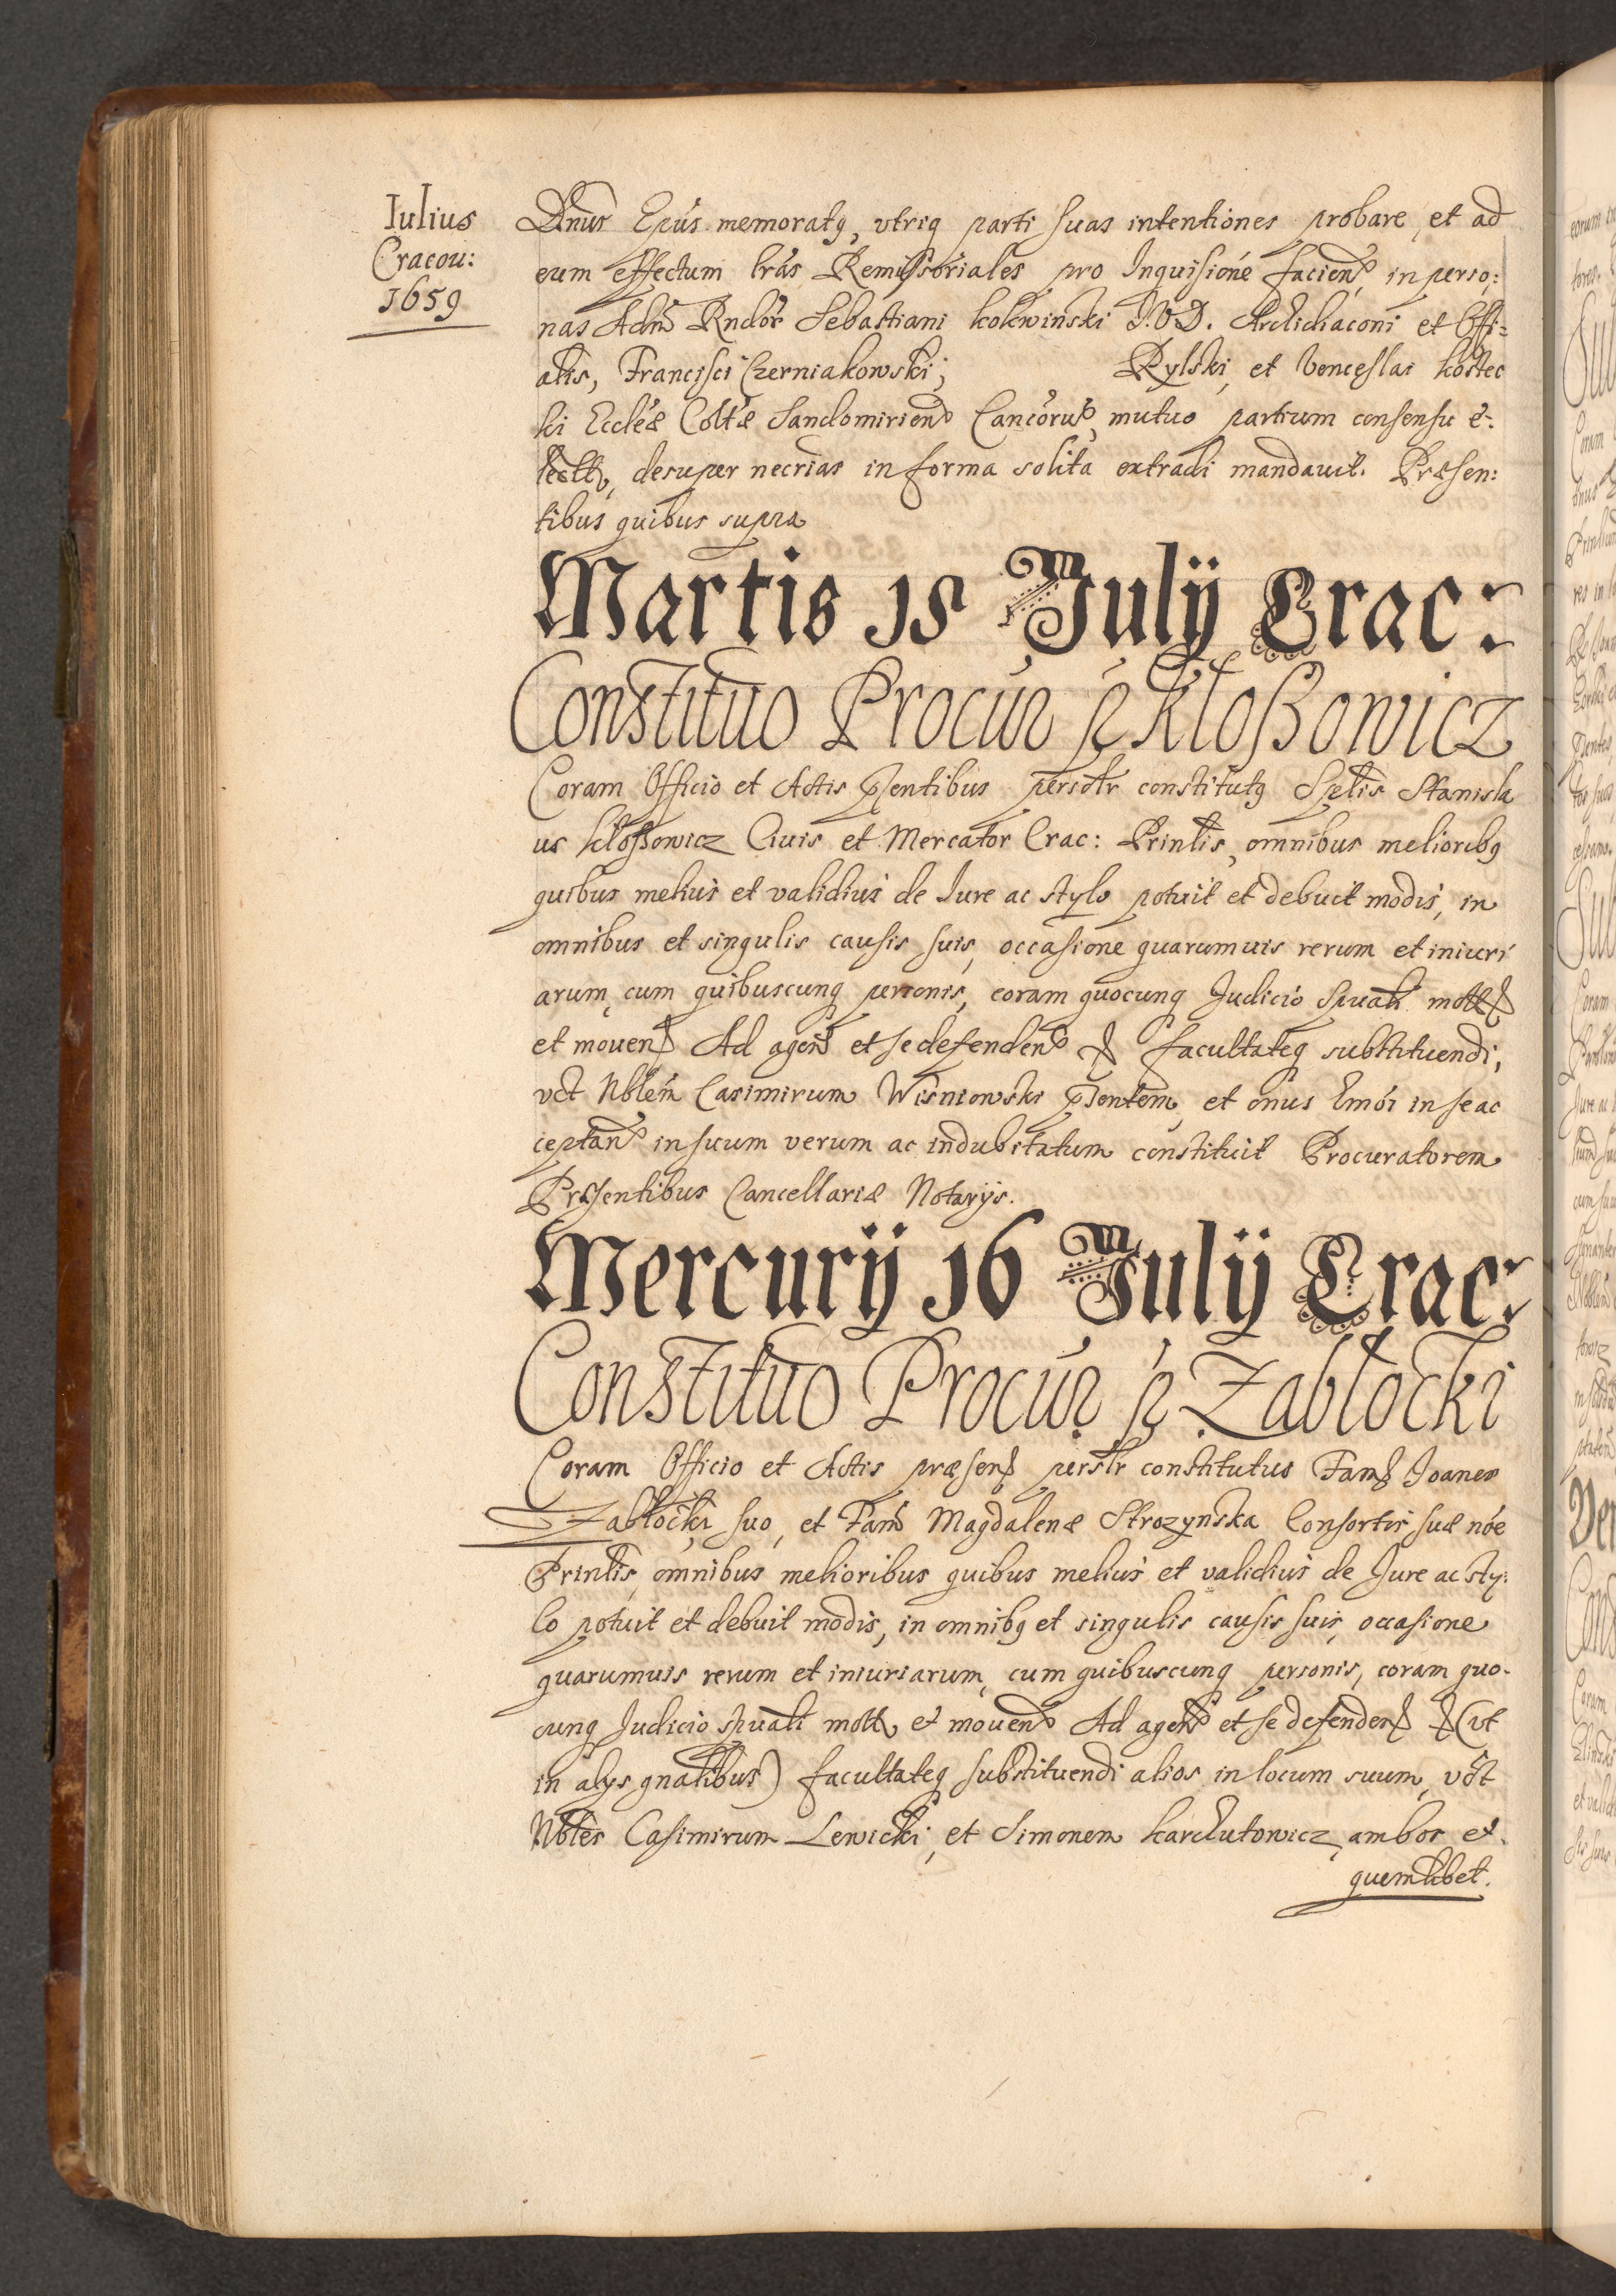 Iulius
Cracou:
1659
Dnus Epus memoratq, vtriq parti suas intentiones probare, et ad
eum effectum lras Remissoriales pro Inquisione facien, in perso:
nas Adm Rndor Sebastiani Kokwinski I.V.D. Archidiaconi et Offi:
alis, Francisci Czerniakowski, Rylski, et Venceslai Kostec
ki Eccleæ Coltæ Sandomirien Cancoru, mutuo partium consensu e:
lectt, desuper necrias in forma solita extradi mandauit. Præsen:
tibus quibus supra
Martis 15 July Crac:
Constituo Procur p Kłoßowicz
Coram Officio et Actis pntibus persotr constitutq Spetis Stanisla
us Kłoßowicz Ciuis et Mercator Crac: Printis, omnibus melioribq
quibus melius et validius de Iure ac stylo potuit et debuit modis, in
omnibus et singulis causis suis, occasione quarumuis rerum et iniuri
arum, cum quibuscunq personis, coram quocunq Judicio Spuali mott
et mouen Ad agen et se defenden facultateq substituendi,
vct Nblem Casimirum Wisniowski pntem, et onus hmoi in se ac
ceptan in suum verum ac indubitatum constituit Procuratorem
Præsentibus Cancellariæ Notarijs.
Mercurij 16 July Crac:
Constituo Procur p Zabłocki
Coram Officio et Actis præsen perstr constitutus Fam Joanes
Zabłocki, suo, et Fam Magdalenæ Strozynska Consortis suæ noe
Printis, omnibus melioribus quibus melius et validius de Jure ac sty:
lo potuit et debuit modis, in omnibq et singulis causis suis, occasione
quarumuis rerum et iniuriarum, cum quibuscunq personis, coram quo-
cunq Judicio spuali mott, et mouen Ad agen et se defenden (vt
in alys gnalibus) facultateq substituendi alios in locum suum, vct
Nbles Casimirum Lewicki, et Simonem Karchutowicz, ambos et
quemlibet.